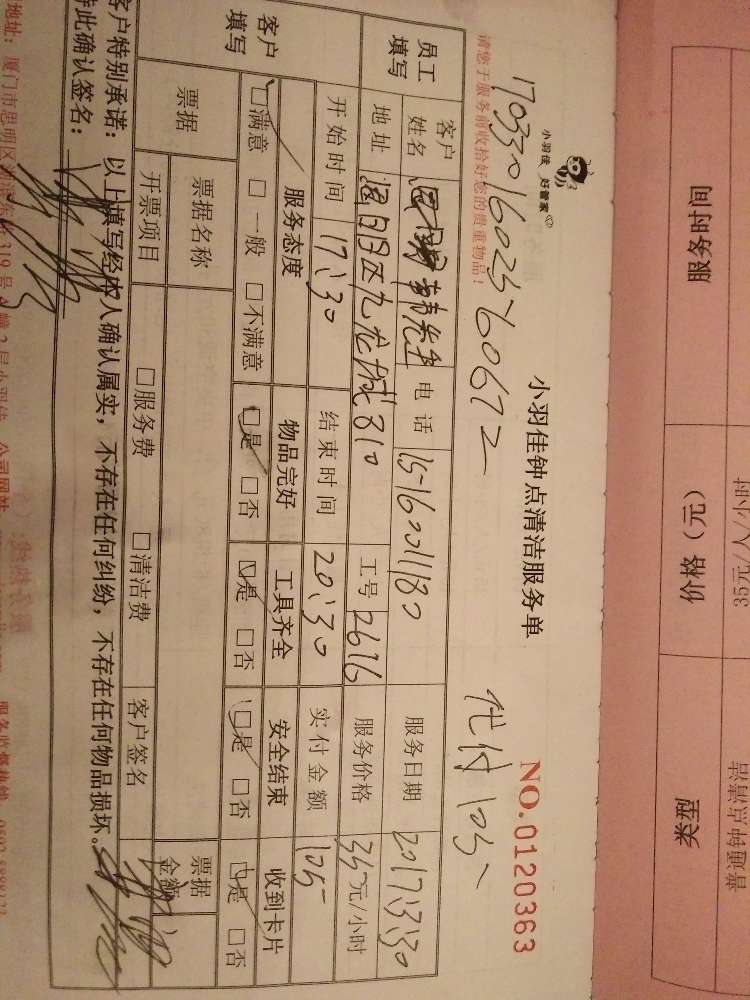 小羽佳 好管家
小羽佳钟点清洁服务单
NO.0120363
1703301602560672
代付105
请您于服务前收拾好您的贵重物品！
员工填写
客户姓名
韩先生
电话
服务日期
2017.3.30
地址
九龙城810
工号
2616
服务价格
35元/小时
开始时间
17:30
结束时间
20:30
实付金额
105
客户填写
服务态度
物品完好
工具齐全
安全结束
收到卡片
□满意 □一般 □不满意
□是 □否
□是 □否
□是 □否
□是 □否
票据
票据名称
票据金额
开票项目
□服务费 □清洁费
客户签名
客户特别承诺：以上填写经本人确认属实，不存在任何纠纷，不存在任何物品损坏。
特此确认签名：
地址：厦门市思明区
319号
2层小羽佳
公司网站
服务监督热线
服务时间
价格（元）
35元/人/小时
类型
普通钟点清洁